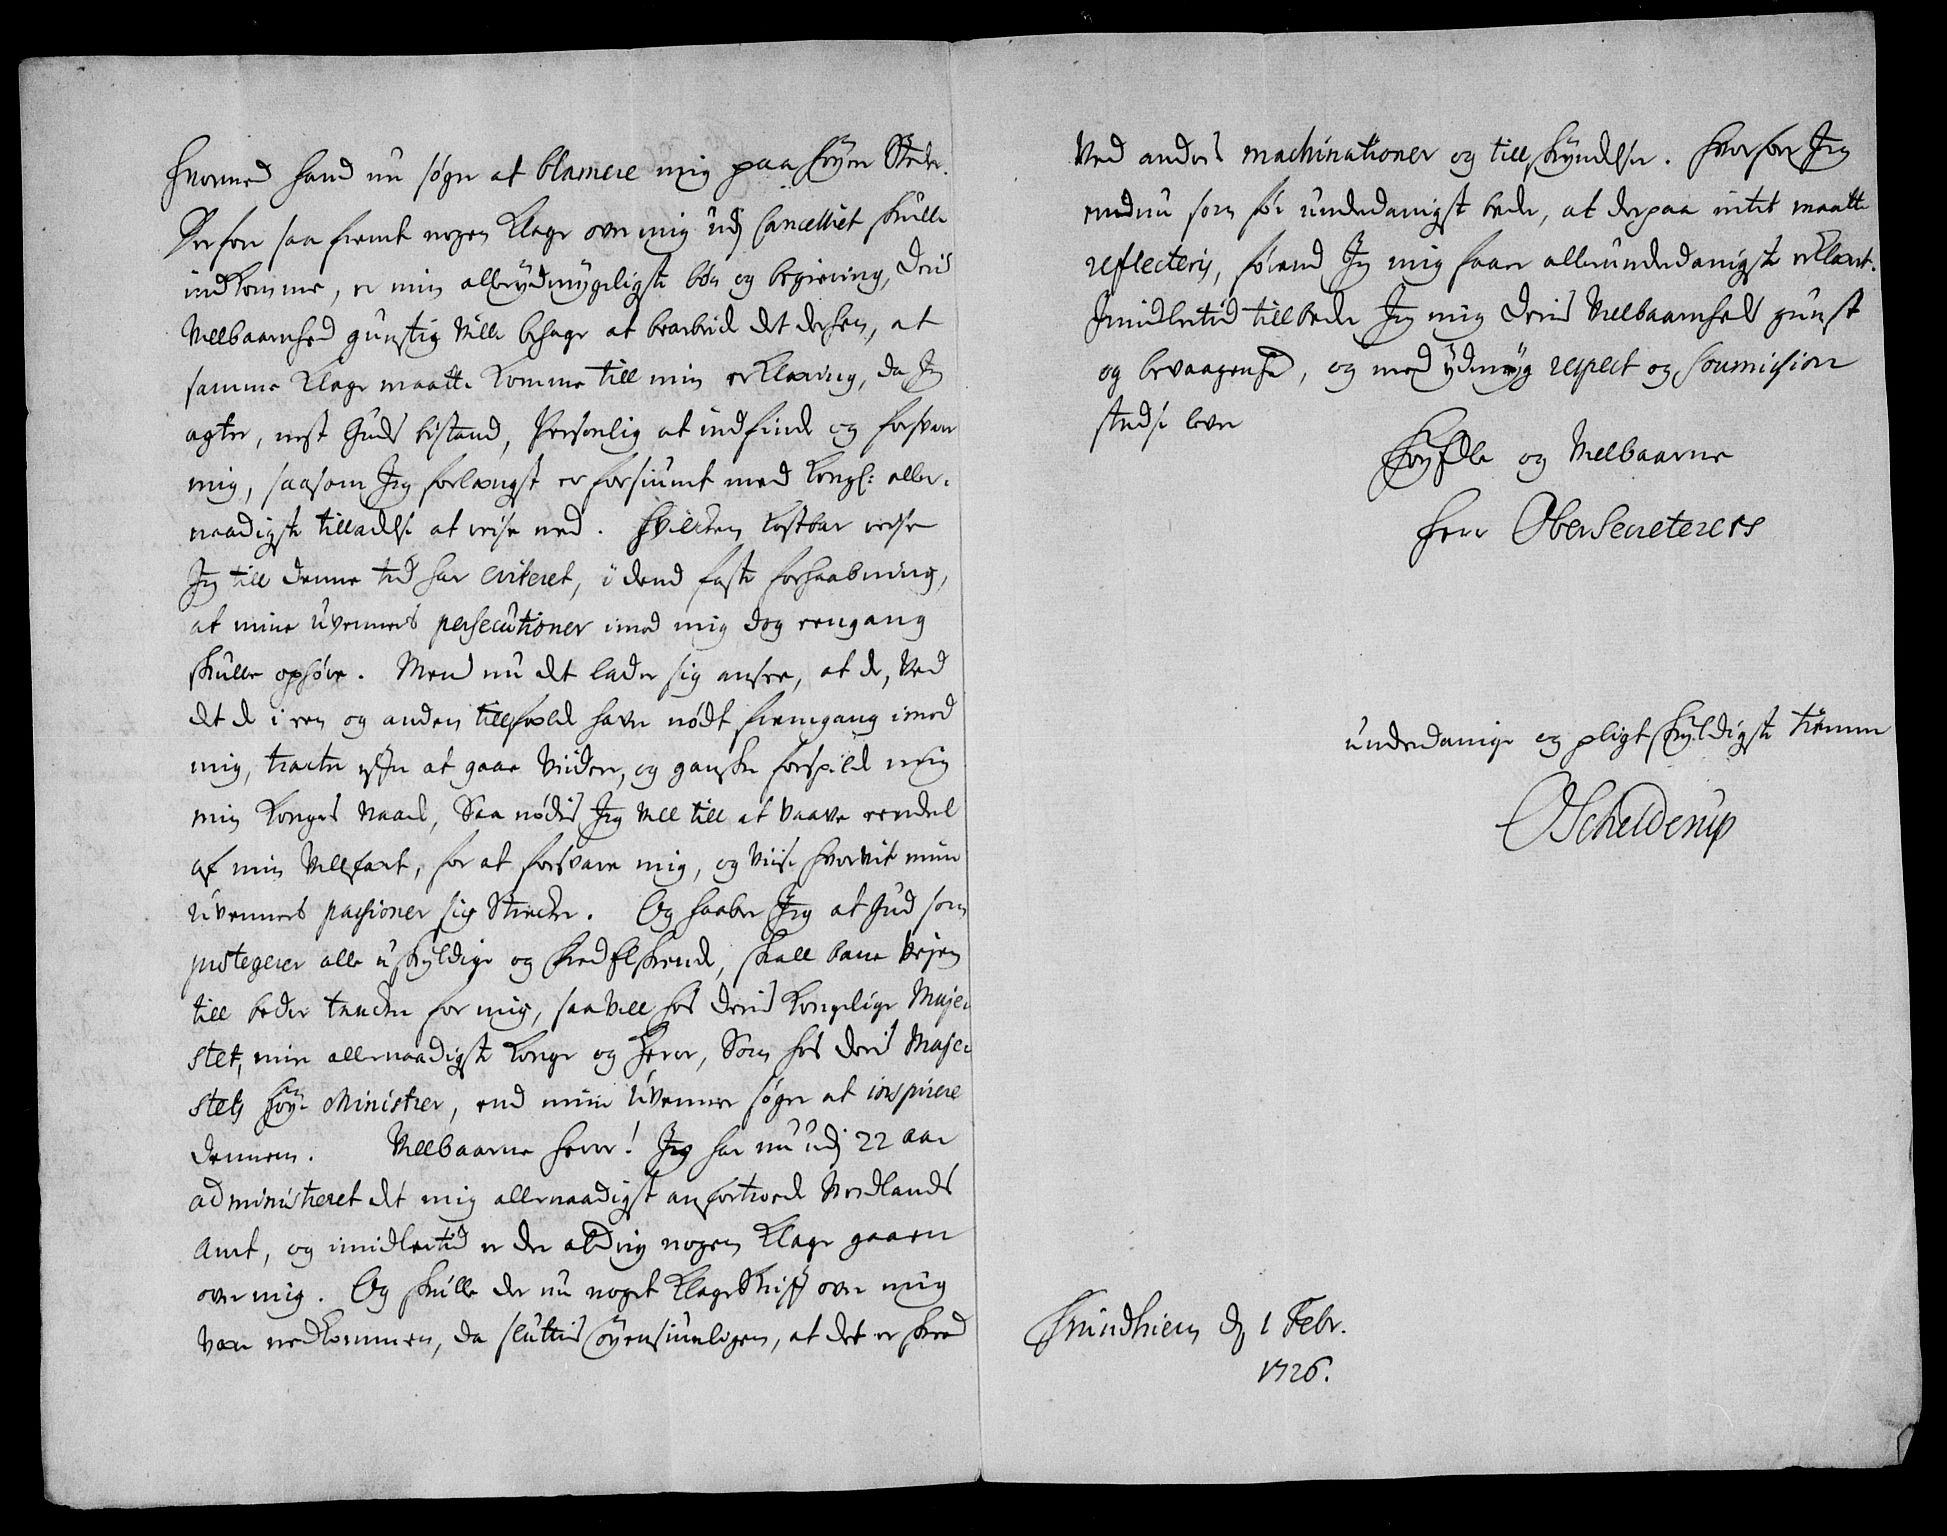 hvormed hand nu søger at blamere mig paa høyere Steder.
Derfor saa fremt nogen Klage over mig udj Cancelliet skulle
indkomme, er min allerydmygeligste bøn og begiering, Deris
Velbaarenhed gunstig ville behage at bearbeide det derhen, at
samme Klage maatte komme till min erklæring, da Jeg
agter, nest Guds bistand, Personlig at indfinde og forsvare
mig, saasom Jeg forlængst er forsiunt med Kongl: aller-
naadigste tilladelse at reise ned. Hvilcken kostbar reyse
Jeg till denne tid har eviteret, i dend faste forhaabning,
at mine Uvenners persecutioner imod mig dog eengang
skulle ophøre. Mend nu det lader sig ansee, at de, ved
det de i een og anden tillfæld have nødt fremgang imod
mig, tracter efter at gaae viidere, og ganske forspilde mig
min Konges Naade, Saa nødis Jeg vell till at vaave eendel
af min Velfært, for at forsvare mig, og viise hvorvit mine
Uvenners passioner sig Strecker. Og haaber Jeg at Gud som
protegerer alle uskyldige og fredelskende, skall bane Vejen
till bedre tancker for mig, saavell hos Deris Kongelige Maje-
stet, min allernaadigste Konge og Herre, Som hos Deris Maje-
stets høye Ministrer, end mine Uvenner søger at inspirere
dennem. Velbaarne Herre! Jeg har nu udj 22 aar
administreret det mig allernaadigst anfortroede Nordlands
Amt, og imidlertid er der aldrig nogen Klage gaaen
over mig. Og skulle der nu noget Klage Skrift over mig
være nedkommen, da sluttis øyensiunligen, at det er skeed
Ved anders machinationer og tillskyndelser. Hvorfore Jeg
endnu som før underdanigst beder, at derpaa intet maatte
reflecteris, førend Jeg mig faaer allerunderdanigste erklæret.
Imidlertid tillbeder Jeg mig Deris Velbaarenheds gunst
og bevaagenhed, og med ydmyg respect og soumission
stedse lever
HøyEdle og Velbaarne
Herr Obersecreterers
underdanige og pligtskyldigste tienner
OSchelderup
Thrundhiem dj 1 Febr.
1726.